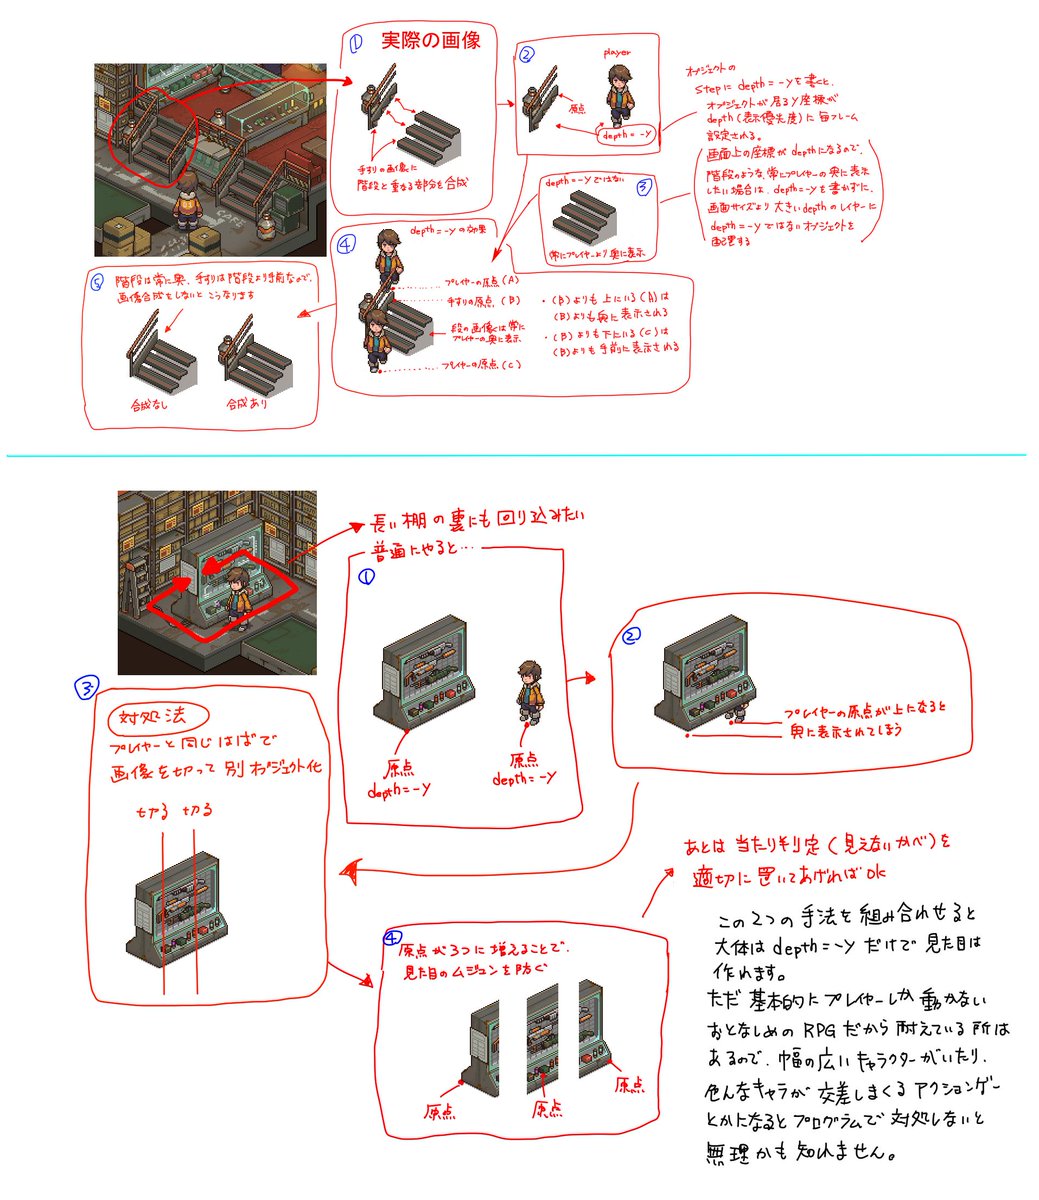 ① 実際の画像
手すりの画像に
階段と重なる部分を合成
②
player
原点
depth=-y
オブジェクトの
Stepに depth=-yを書くと、
オブジェクトが居るy座標が
depth(表示優先度)に毎フレーム
設定される。
画面上の座標がdepthになるので、
階段のような、常にプレイヤーの奥に表示
したい場合は、depth=-yを書かずに、
画面サイズより大きいdepthのレイヤーに
depth=-yではないオブジェクトを
配置する
③
depth=-yではない
常にプレイヤーより奥に表示
④
depth=-yの効果
プレイヤーの原点(A)
手すりの原点(B)
段の画像くは常に
プレイヤーの奥に表示
プレイヤーの原点(C)
・(B)よりも上にいる(A)は
(B)よりも奥に表示される
・(B)よりも下にいる(C)は
(B)よりも手前に表示される
⑤ 階段は常に奥、手すりは階段より手前なので、
画像合成をしないとこうなります
合成なし
合成あり
長い棚の裏にも回り込みたい
普通にやると…
①
原点
depth=-y
原点
depth=-y
②
プレイヤーの原点が上になると
奥に表示されてしまう
③
対処法
プレイヤーと同じはばで
画像を切って別オブジェクト化
切る 切る
④
原点が3つに増えることで、
見た目のムジュンを防ぐ
原点
原点
原点
あとは当たり判定(見えないかべ)を
適切に置いてあげればOK
この2つの手法を組み合わせると
大体はdepth=-yだけで見た目は
作れます。
ただ基本的にプレイヤーしか動かない
おとなしめのRPGだから耐えている所は
あるので、幅の広いキャラクターがいたり、
色んなキャラが交差しまくるアクションゲー
とかになるとプログラムで対処しないと
無理かも知れません。